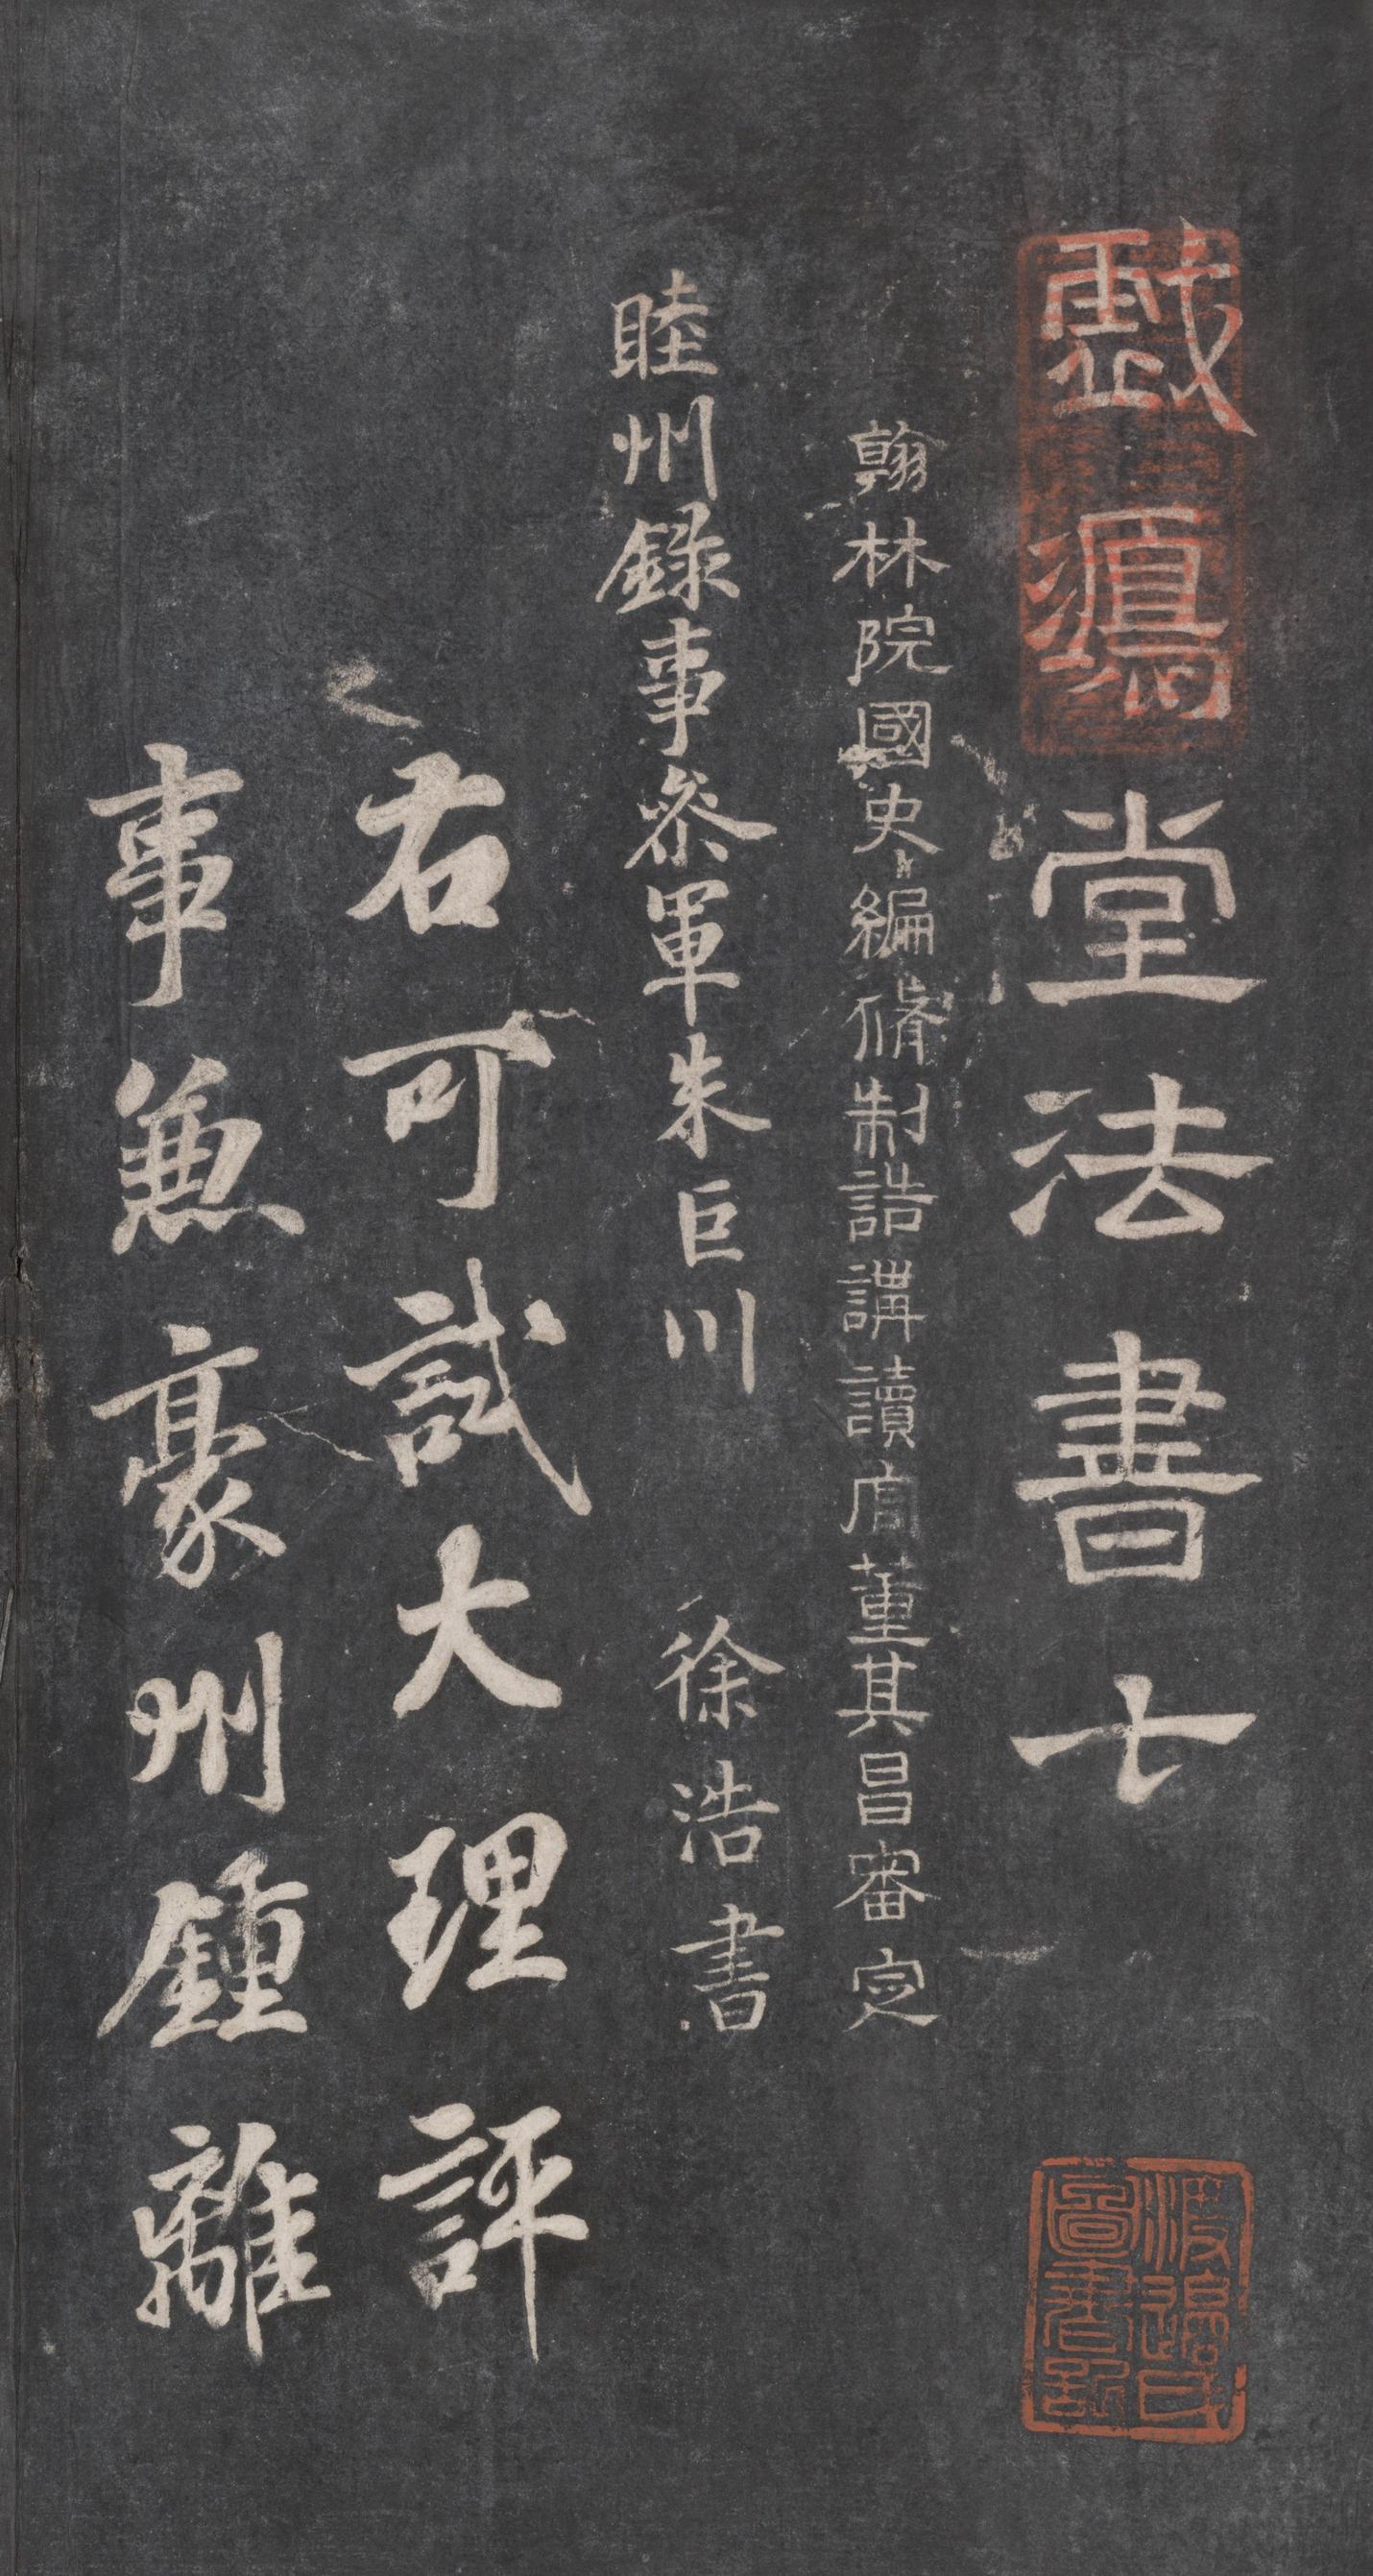 戲鴻堂法書七
翰林院國史編脩制誥講讀官董其昌審定
睦州錄事參軍朱巨川 徐浩書
右可試大理評
事兼豪州鍾離
渡邊氏圖書記